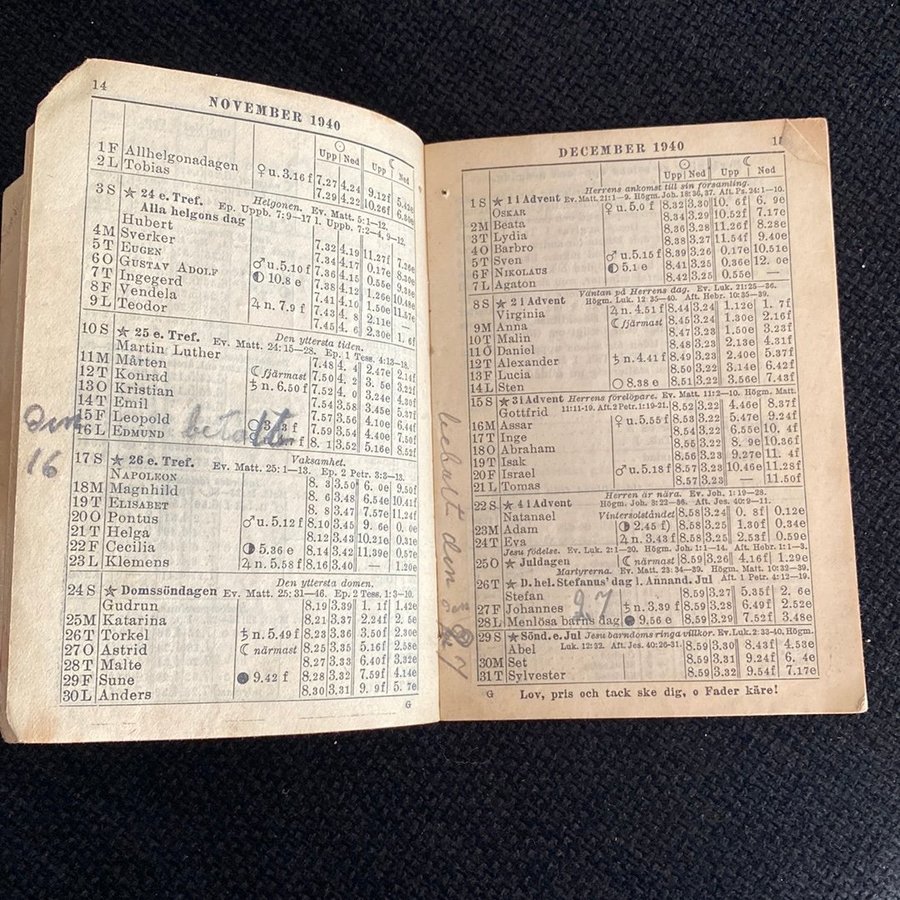 14
NOVEMBER 1940
Upp Ned Upp Ned
1 F Allhelgonadagen ♀ u. 3.16 f 7.27 4.24 9.12f 5.42e
2 L Tobias 7.29 4.22 10.26f
3 S ★ 24 e. Tref. Helgonen. Ev. Matt. 5:1—12.
Alla helgons dag Ep. Uppb. 7:9—17 l. Uppb. 7:2—4, 9—12.
Hubert 7.32 4.19 11.27f
4M Sverker 7.34 4.17 0.17e
5T EUGEN ♂ u. 5.10 f 7.36 4.15 0.55e
6O GUSTAV ADOLF ◐ 10.8 e 7.38 4.12 1.26e
7T Ingegerd 7.41 4.10 1.50e
8F Vendela 7.43 4. 8 2.11e —
9L Teodor ♃ n. 7.9 f 7.45 4. 6 2.30e 1. 6f
10 S ★ 25 e. Tref. Den yttersta tiden.
Martin Luther Ev. Matt. 24:15—28. Ep. 1 Tess. 4:13—18.
7.48 4. 4 2.47e 2.14f
11M Mårten ☾ fjärmast 7.50 4. 2 3. 5e 3.22f
12T Konrad ♄ n. 6.50 f 7.52 4. 0 3.24e 4.35f
13O Kristian 7.54 3.58 3.45e 5.37f
14T Emil 7.57 3.56 4.10e 6.44f
15F Leopold 7.59 3.54 4.40e 7.50f
16 L EDMUND 8. 1 3.52 5.16e 8.52f
betalt
16
17 S ★ 26 e. Tref. Vaksamhet.
NAPOLEON Ev. Matt. 25:1—13. Ep. 2 Petr. 3:3—13.
8. 3 3.50 6. 0e 9.50f
18M Magnhild 8. 6 3.48 6.54e 10.41f
19T ELISABET 8. 8 3.47 7.57e 11.24f
20O Pontus ♂ u. 5.12 f 8.10 3.45 9. 6e 0. 0e
21T Helga 8.12 3.43 10.21e 0.31e
22F Cecilia ◑ 5.36 e 8.14 3.42 11.39e 0.57e
23 L Klemens ♃ n. 5.58 f 8.16 3.40 — 1.20e
24 S ★ Domssöndagen Den yttersta domen.
Ev. Matt. 25:31—46. Ep. 2 Tess. 1:3—10.
Gudrun 8.19 3.39 1. 1f 1.42e
25M Katarina 8.21 3.37 2.24f 2. 5e
26T Torkel ♄ n. 5.49 f 8.23 3.36 3.50f 2.30e
27O Astrid ☾ närmast 8.25 3.35 5.16f 2.58e
28T Malte 8.27 3.33 6.40f 3.32e
29F Sune ● 9.42 f 8.28 3.32 7.59f 4.14e
30L Anders 8.30 3.31 9. 9f 5. 7e
G
DECEMBER 1940
Upp Ned Upp Ned
1 S ★ 1 i Advent Herrens ankomst till sin församling.
Ev. Matt. 21:1—9. Högm. Joh. 18:36, 37. Aft. Ps. 24:1—10.
OSKAR ♀ u. 5.0 f 8.32 3.30 10. 6f 6. 9e
2M Beata 8.34 3.29 10.52f 7.17e
3T Lydia 8.36 3.28 11.26f 8.28e
4O Barbro 8.38 3.27 11.54f 9.40e
5T Sven ♂ u. 5.15 f 8.39 3.26 0.17e 10.51e
6F NIKOLAUS ◐ 5.1 e 8.41 3.25 0.36e 12. 0e
7L Agaton 8.42 3.25 0.55e —
8S ★ 2 i Advent Väntan på Herrens dag. Ev. Luk. 21:25—36.
Högm. Luk. 12 35—40. Aft. Hebr. 10:35—39.
Virginia ♃ n. 4.51 f 8.44 3.24 1.12e 1. 7f
9M Anna ☾ fjärmast 8.45 3.24 1.30e 2.16f
10T Malin 8.47 3.23 1.50e 3.23f
11O Daniel 8.48 3.23 2.13e 4.31f
12T Alexander ♄ n. 4.41 f 8.49 3.23 2.40e 5.37f
13F Lucia 8.50 3.22 3.14e 6.42f
14 L Sten ○ 8.38 e 8.51 3.22 3.56e 7.43f
15S ★ 3 i Advent Herrens förelöpare. Ev. Matt. 11:2—10. Högm. Matt.
11:11-19. Aft. 2 Petr. 1:19-21.
Gottfrid 8.52 3.22 4.46e 8.37f
16M Assar ♀ u. 5.55 f 8.53 3.22 5.47e 9.24f
17T Inge 8.54 3.22 6.55e 10. 4f
18O Abraham 8.55 3.22 8. 9e 10.36f
19T Isak 8.56 3.23 9.27e 11. 4f
20F Israel ♂ u. 5.18 f 8.57 3.23 10.46e 11.28f
21L Tomas 8.57 3.23 — 11.50f
22S ★ 4 i Advent Herren är nära. Ev. Joh. 1:19—28.
Natanael Vintersolståndet 8.58 3.24 0. 8f 0.12e
23M Adam ◑ 2.45 f) 8.58 3.25 1.30f 0.34e
24T Eva ♃ n. 3.43 f 8.58 3.25 2.53f 0.59e
Jesu födelse. Ev. Luk. 2:1—20. Högm. Joh. 1:1—14. Aft. Hebr. 1:1—3.
25O ★ Juldagen ☾ närmast 8.59 3.26 4.16f 1.29e
Martyrerna. Ev. Matt. 23:34—39. Högm. Matt. 10:32—39.
26T ★ D. hel. Stefanus' dag l. Annand. Jul Aft. 1 Petr. 4:12—19.
Stefan 8.59 3.27 5.35f 2. 6e
27F Johannes 27 ♄ n. 3.39 f 8.59 3.28 6.49f 2.52e
28L Menlösa barns dag ● 9.56 e 8.59 3.29 7.52f 3.48e
29S ★ Sönd. e. Jul Jesu barndoms ringa villkor. Ev. Luk. 2:33-40. Högm.
Luk. 12:32. Aft. Jes. 40:26-31.
Abel 8.59 3.30 8.43f 4.53e
30M Set 8.59 3.31 9.24f 6. 4e
31T Sylvester 8.59 3.32 9.54f 7.17e
G Lov, pris och tack ske dig, o Fader käre!